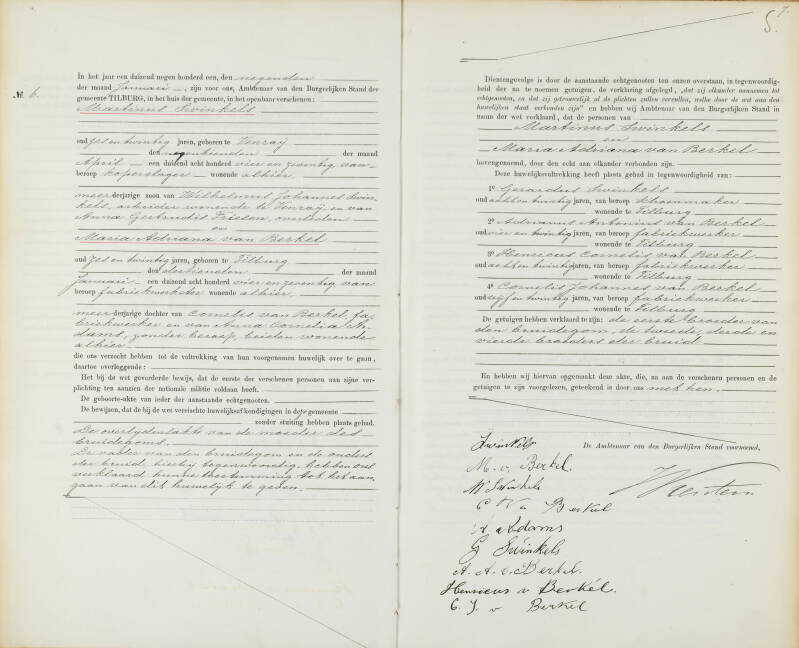 In het jaar een duizend negen honderd een, den negenden
der maand Januari, zijn voor ons, Ambtenaar van den Burgerlijken Stand der
gemeente TILBURG, in het huis der gemeente, in het openbaar verschenen:
№ 6.
Martinus Swinkels
oud zes en twintig jaren, geboren te Venray
den negentienden der maand
April een duizend acht honderd vier en zeventig van
beroep koperslager wonende alhier
meerderjarige zoon van Wilhelmus Johannes Swin-
kels, arbeider wonende te Venray, en van
Anna Gertrudis Friesen, overleden
en
Maria Adriana van Berkel
oud zes en twintig jaren, geboren te Tilburg
den dertienden der maand
Januari een duizend acht honderd vier en zeventig van
beroep fabriekwerkster wonende alhier.
meerderjarige dochter van Cornelis van Berkel, fa-
briekwerker en van Anna Cornelia A-
dams, zonder beroep, beiden wonende
alhier
die ons verzocht hebben tot de voltrekking van hun voorgenomen huwelijk over te gaan,
daartoe overleggende:
Het bij de wet gevorderde bewijs, dat de eerste der verschenen personen aan zijne ver-
plichting ten aanzien der nationale militie voldaan heeft.
De geboorte-akte van ieder der aanstaande echtgenooten.
De bewijzen, dat de bij de wet vereischte huwelijksafkondigingen in deze gemeente
zonder stuiting hebben plaats gehad.
De overlijdensakte van de moeder des
bruidegoms.
De vader van den bruidegom en de ouders
der bruid, hierbij tegenwoordig, hebben ons
verklaard hunne toestemming tot het aan-
gaan van dit huwelijk te geven.
7.
5.
Dientengevolge is door de aanstaande echtgenooten ten onzen overstaan, in tegenwoordig-
heid der na te noemen getuigen, de verklaring afgelegd, „dat zij elkander aannemen tot
echtgenooten, en dat zij getrouwelijk al de plichten zullen vervullen, welke door de wet aan den
huwelijken staat verbonden zijn" en hebben wij Ambtenaar van den Burgerlijken Stand in
naam der wet verklaard, dat de personen van
Martinus Swinkels
en
Maria Adriana van Berkel
bovengenoemd, door den echt aan elkander verbonden zijn.
Deze huwelijksvoltrekking heeft plaats gehad in tegenwoordigheid van:
1° Gerardus Swinkels
oud acht en twintig jaren, van beroep schoenmaker
wonende te Tilburg
2° Adrianus Antonius van Berkel
oud vier en twintig jaren, van beroep fabriekwerker
wonende te Tilburg
3° Henricus Cornelis van Berkel
oud acht en twintig jaren, van beroep fabriekwerker
wonende te Tilburg
4° Cornelis Johannes van Berkel
oud vijf en twintig jaren, van beroep fabriekwerker
wonende te Tilburg
De getuigen hebben verklaard te zijn: de eerste broeder van
den bruidegom, de tweede, derde en
vierde broeders der bruid.
En hebben wij hiervan opgemaakt deze akte, die, na aan de verschenen personen en de
getuigen te zijn voorgelezen, geteekend is door ons met hen.
De Ambtenaar van den Burgerlijken Stand voornoemd,
Swinkels
M. v. Berkel.
W Swinkels
C Van Berkel
A Adams
G Swinkels
A. A. v. Berkel.
Henricus v Berkel.
C. J. v Berkel